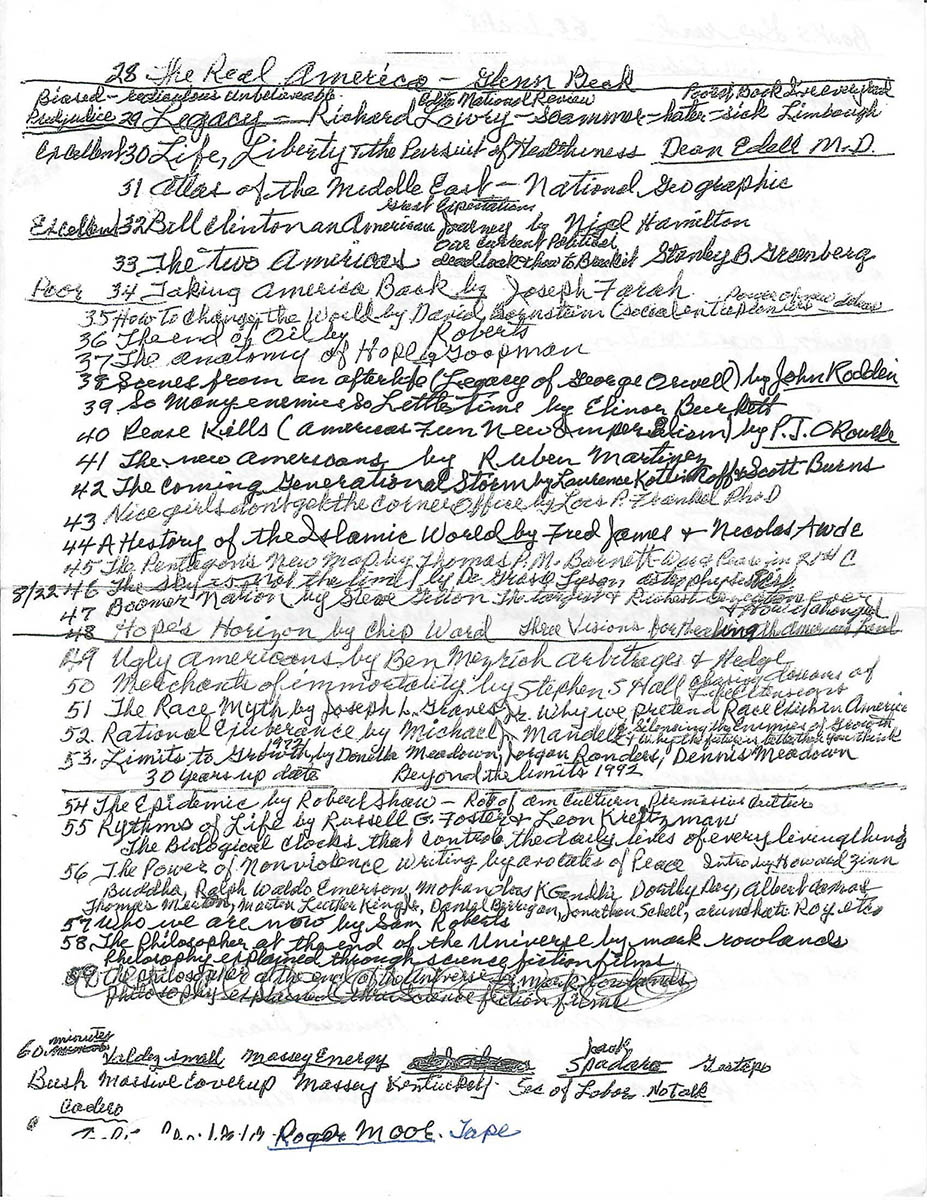 28 The Real America - Glenn Beck
Biased - rediculous unbelieveable
Editor National Review
Poorist Book I've ever read
Predjudice 29 Legacy - Richard Lowry - Scammer - hater - sick Limbaugh
Excellent 30 Life, Liberty & the Pursuit of Healthiness Dean Edell M.D.
31 Atlas of the Middle East - National Geographic
Great Expectations
Excellent 32 Bill Clinton an American Journey by Nigel Hamilton
Our Current Political
33 The two Americas deadlock & how to Break it Stanley B Greenberg
Poor 34 Taking America Back by Joseph Farah
Power of new ideas
35 How to Change the World by David Bornstein (social entrepreniers
36 The end of Oil by Roberts
37 The anatomy of Hope by Goopman
38 Scenes from an afterlife (Legacy of George Orwell) by John Rodden
39 So Many enemies So Little time by Elinor Burkett
40 Peace Kills (Americas Fun New Imperialism) by P.J. O'Rourke
41 The new Americans by Ruben Martinez
42 The Coming Generational Storm by Laurence Kotlikoff & Scott Burns
43 Nice girls don't get the Corner Office by Lois P. Frankel Ph.D
44 A History of the Islamic World by Fred James & Nicolas Awde
45 The Pentagons New Map by Thomas P.M. Barnett War & Peace in 21st C
8/22 46 The Sky is not the limit by De Grasse Tyson astrophysicist
47 Boomer Nation by Steve Gillon The largest & Richest Generation ever
& How it changed
48 Hopes Horizon by Chip Ward Three Visions for Healing the American Land
49 Ugly Americans by Ben Mezrich Arbitrages & Hedge
50 Merchants of immortality by Stephen S Hall chasing dreams of
life extensions
51 The Race Myth by Joseph L. Graves Jr. Why we pretend Race Exists in America
52. Rational Exuberance by Michael J. Mandel Silencing the Enemies of Growth
& why the future is better than you think
1972
53. Limits to Growth, by Donella Meadown, Jorgan Randers, Dennis Meadown
30 Years up date Beyond the limits 1992
54 The Epidemic by Robert Shaw - Rot of am Culture, Permissive
55 Rythms of Life by Russell G. Foster & Leon Kreitzman
The Biological Clocks that control the daily lives of every living thing
56 The Power of Nonviolence Writing by avocates of Peace Intro by Howard Zinn
Buddha, Ralph Waldo Emerson, Mohandas K Gandhi, Dorthy Day, Albert
Thomas Merton, Martin Luther King Jr, Daniel Berrigan, Jonathan Schell, arundhate Roy etc
57 Who we are now by Sam Roberts
58 The Philosopher at the end of the Universe by mark rowlands
Philosophy explained through science fiction films
59 The philosopher at the end of the Universe by mark rowlands
Philosophy explained thru Science fiction films
60 minutes Valdez small Massey Energy Jack Spadaro
Bush Massive Coverup Massey Kentuckey Sec of Labor No Talk
Roger Moore Tape